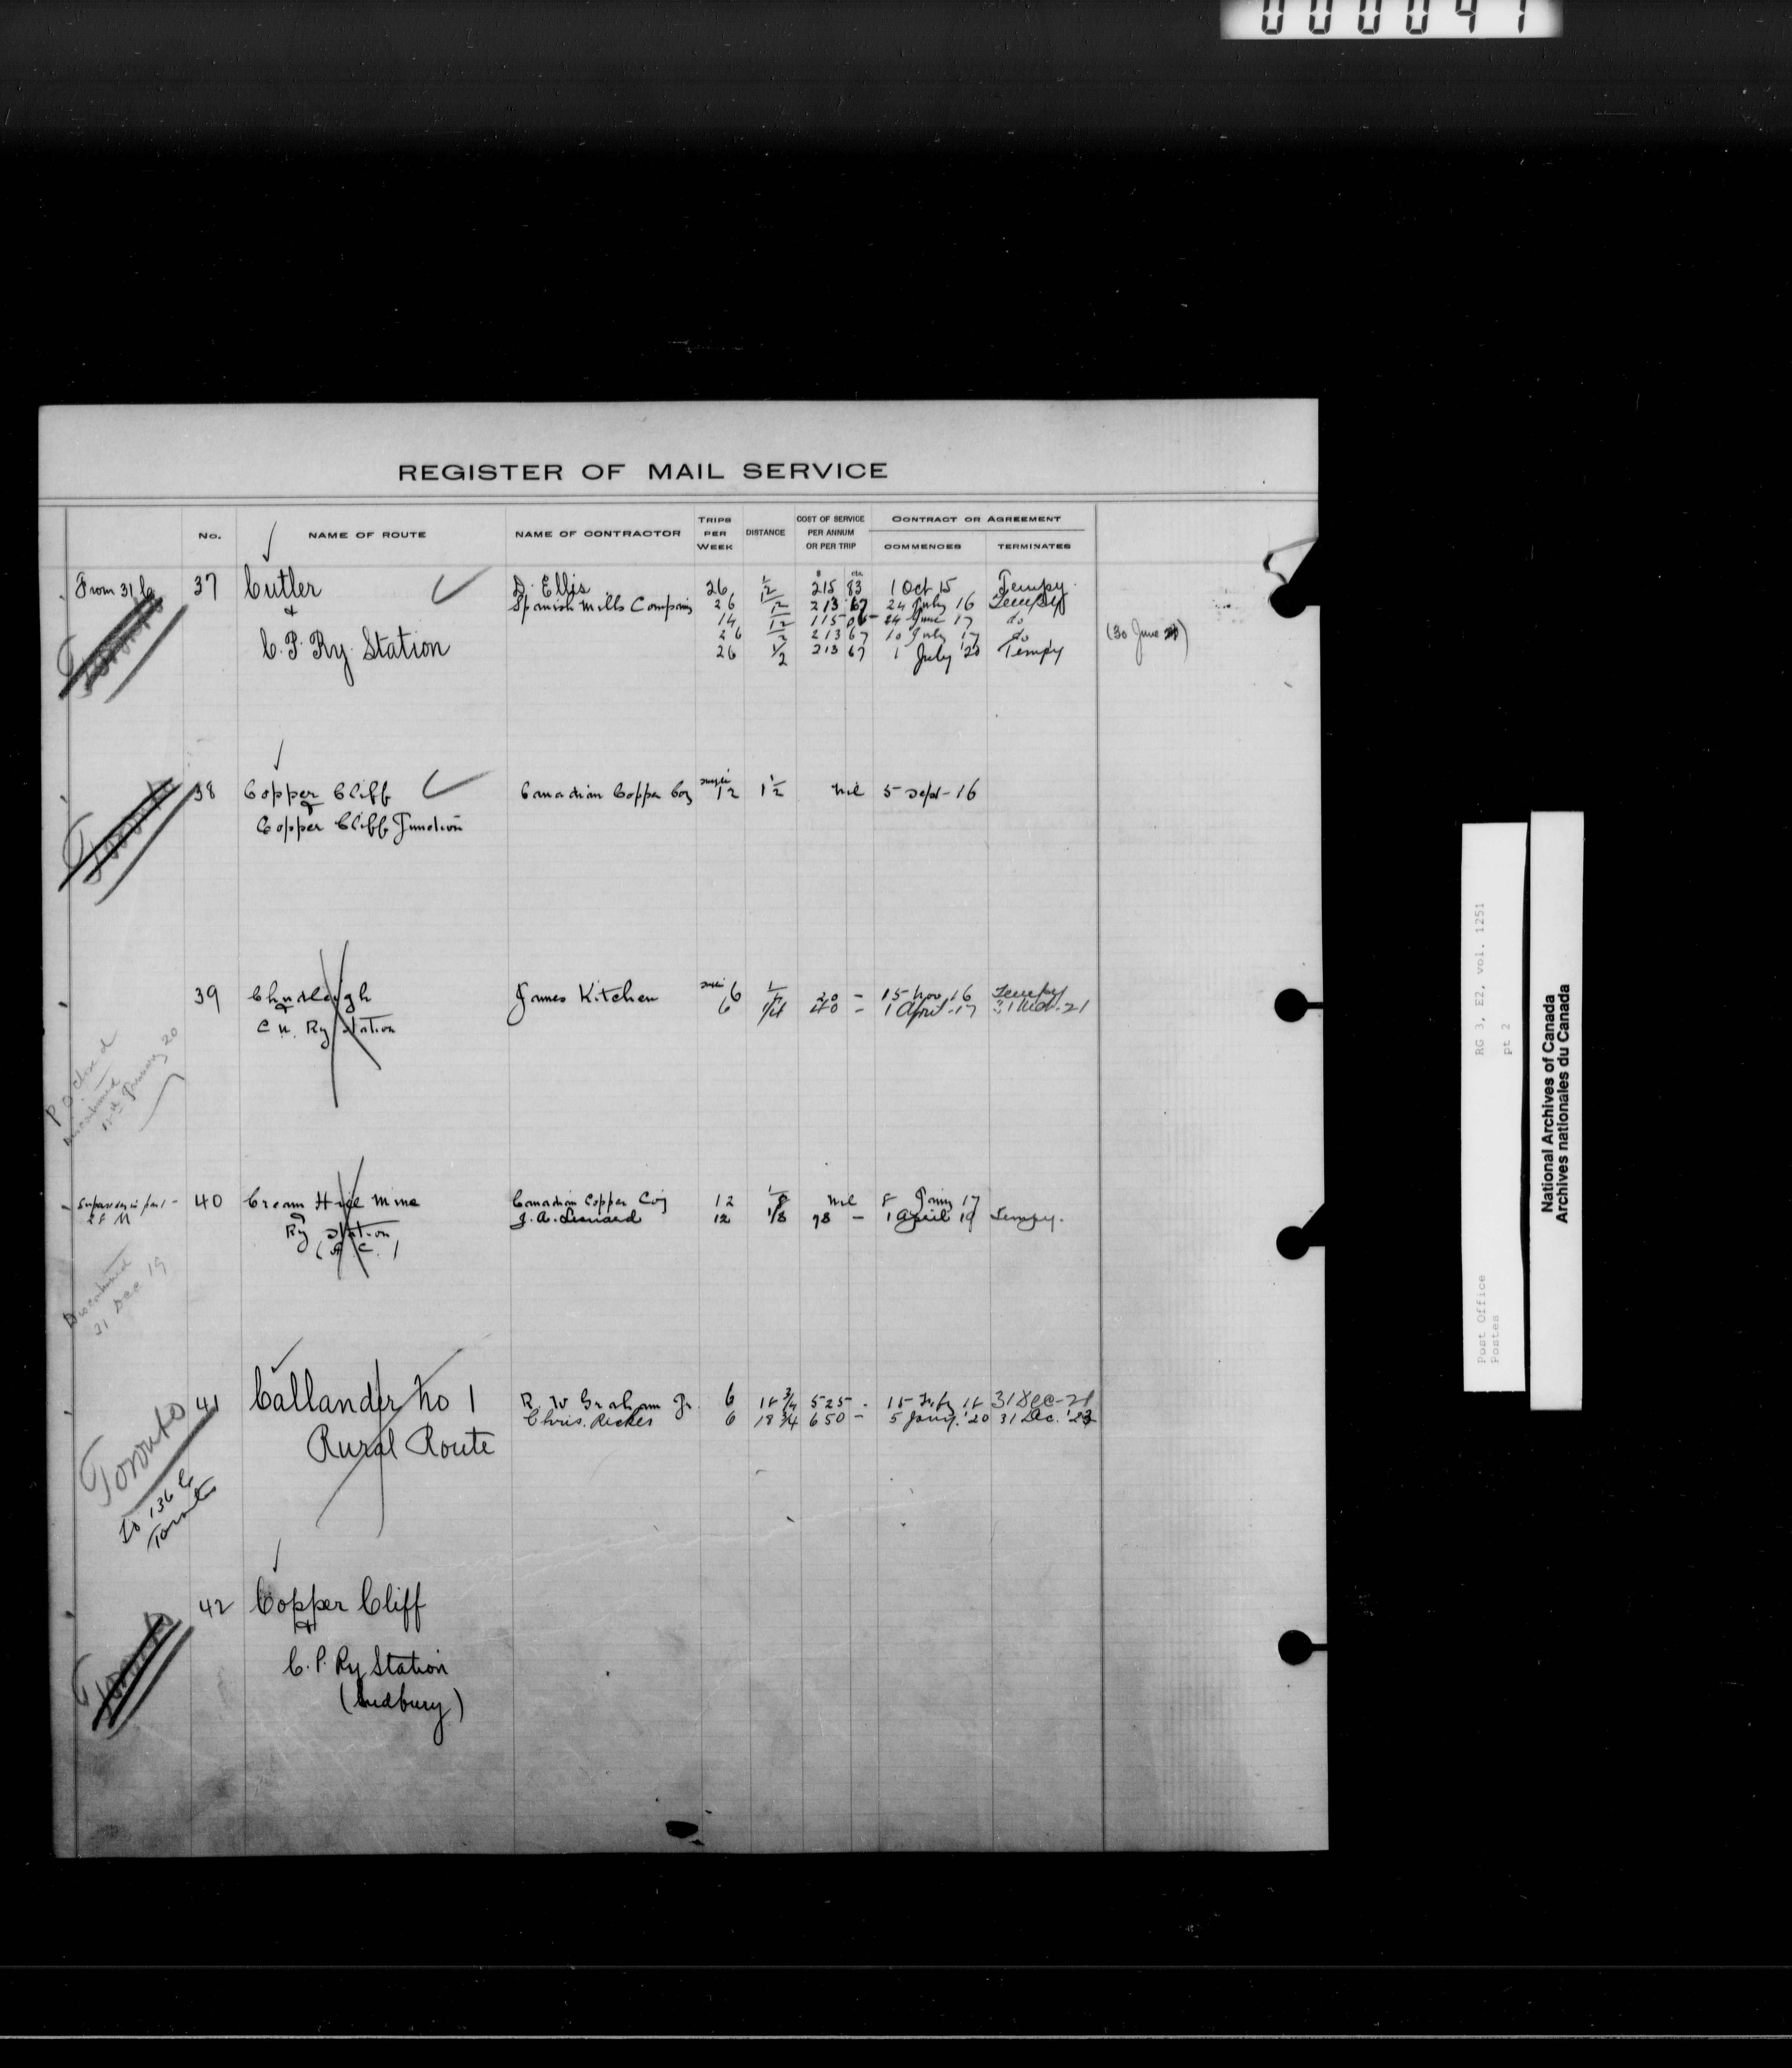 000041
REGISTER OF MAIL SERVICE
No. NAME OF ROUTE NAME OF CONTRACTOR TRIPS PER WEEK DISTANCE COST OF SERVICE PER ANNUM OR PER TRIP CONTRACT OR AGREEMENT COMMENCES TERMINATES
$ cts
From 31 C 37 Cutler D. Ellis 26 1/2 215 83 1 Oct 15 Tempy.
& Spanish Mills Company 26 1/2 213 67 24 July 16 Tempy
14 1/2 115 06 24 June 17 do
Toronto C. P. Ry. Station 26 1/2 213 67 10 July 17 do (30 June 20)
26 1/2 213 67 1 July '20 Tempy
Toronto 38 Copper Cliff Canadian Copper Coy single 12 1 1/2 nil 5 Sept-16
&
Copper Cliff Junction
39 Chudleigh James Kitchen 6 1/4 20 - 15 Nov 16 Tempy
& 6 1/4 40 - 1 April-17 31 Mch-21
C N. Ry Station
P.O. closed
Discontinued
January 20
40 Cream Hill Mine Canadian Copper Coy 12 1/8 nil 8 Jany 17
& J. A. Leonard 12 1/8 78 - 1 April 19 Tempy.
Ry Station
Discontinued
31 Dec 19
Toronto 41 Callander No 1 R. W Graham Jr. 6 18 3/4 525 - 15 Feby 18 31 Dec-21
Rural Route Chris. Rickes 6 18 3/4 650 - 5 Jany. '20 31 Dec. '23
To 136 C
Toronto
Toronto 42 Copper Cliff
&
C. P. Ry Station
(Sudbury)
RG 3, E2, vol. 1251
pt 2
Post Office
Postes
National Archives of Canada
Archives nationales du Canada